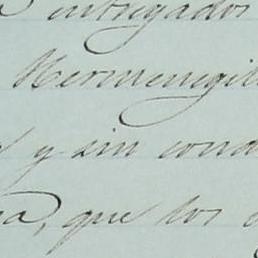 entregados
Hermenegil
y sin cond
que los